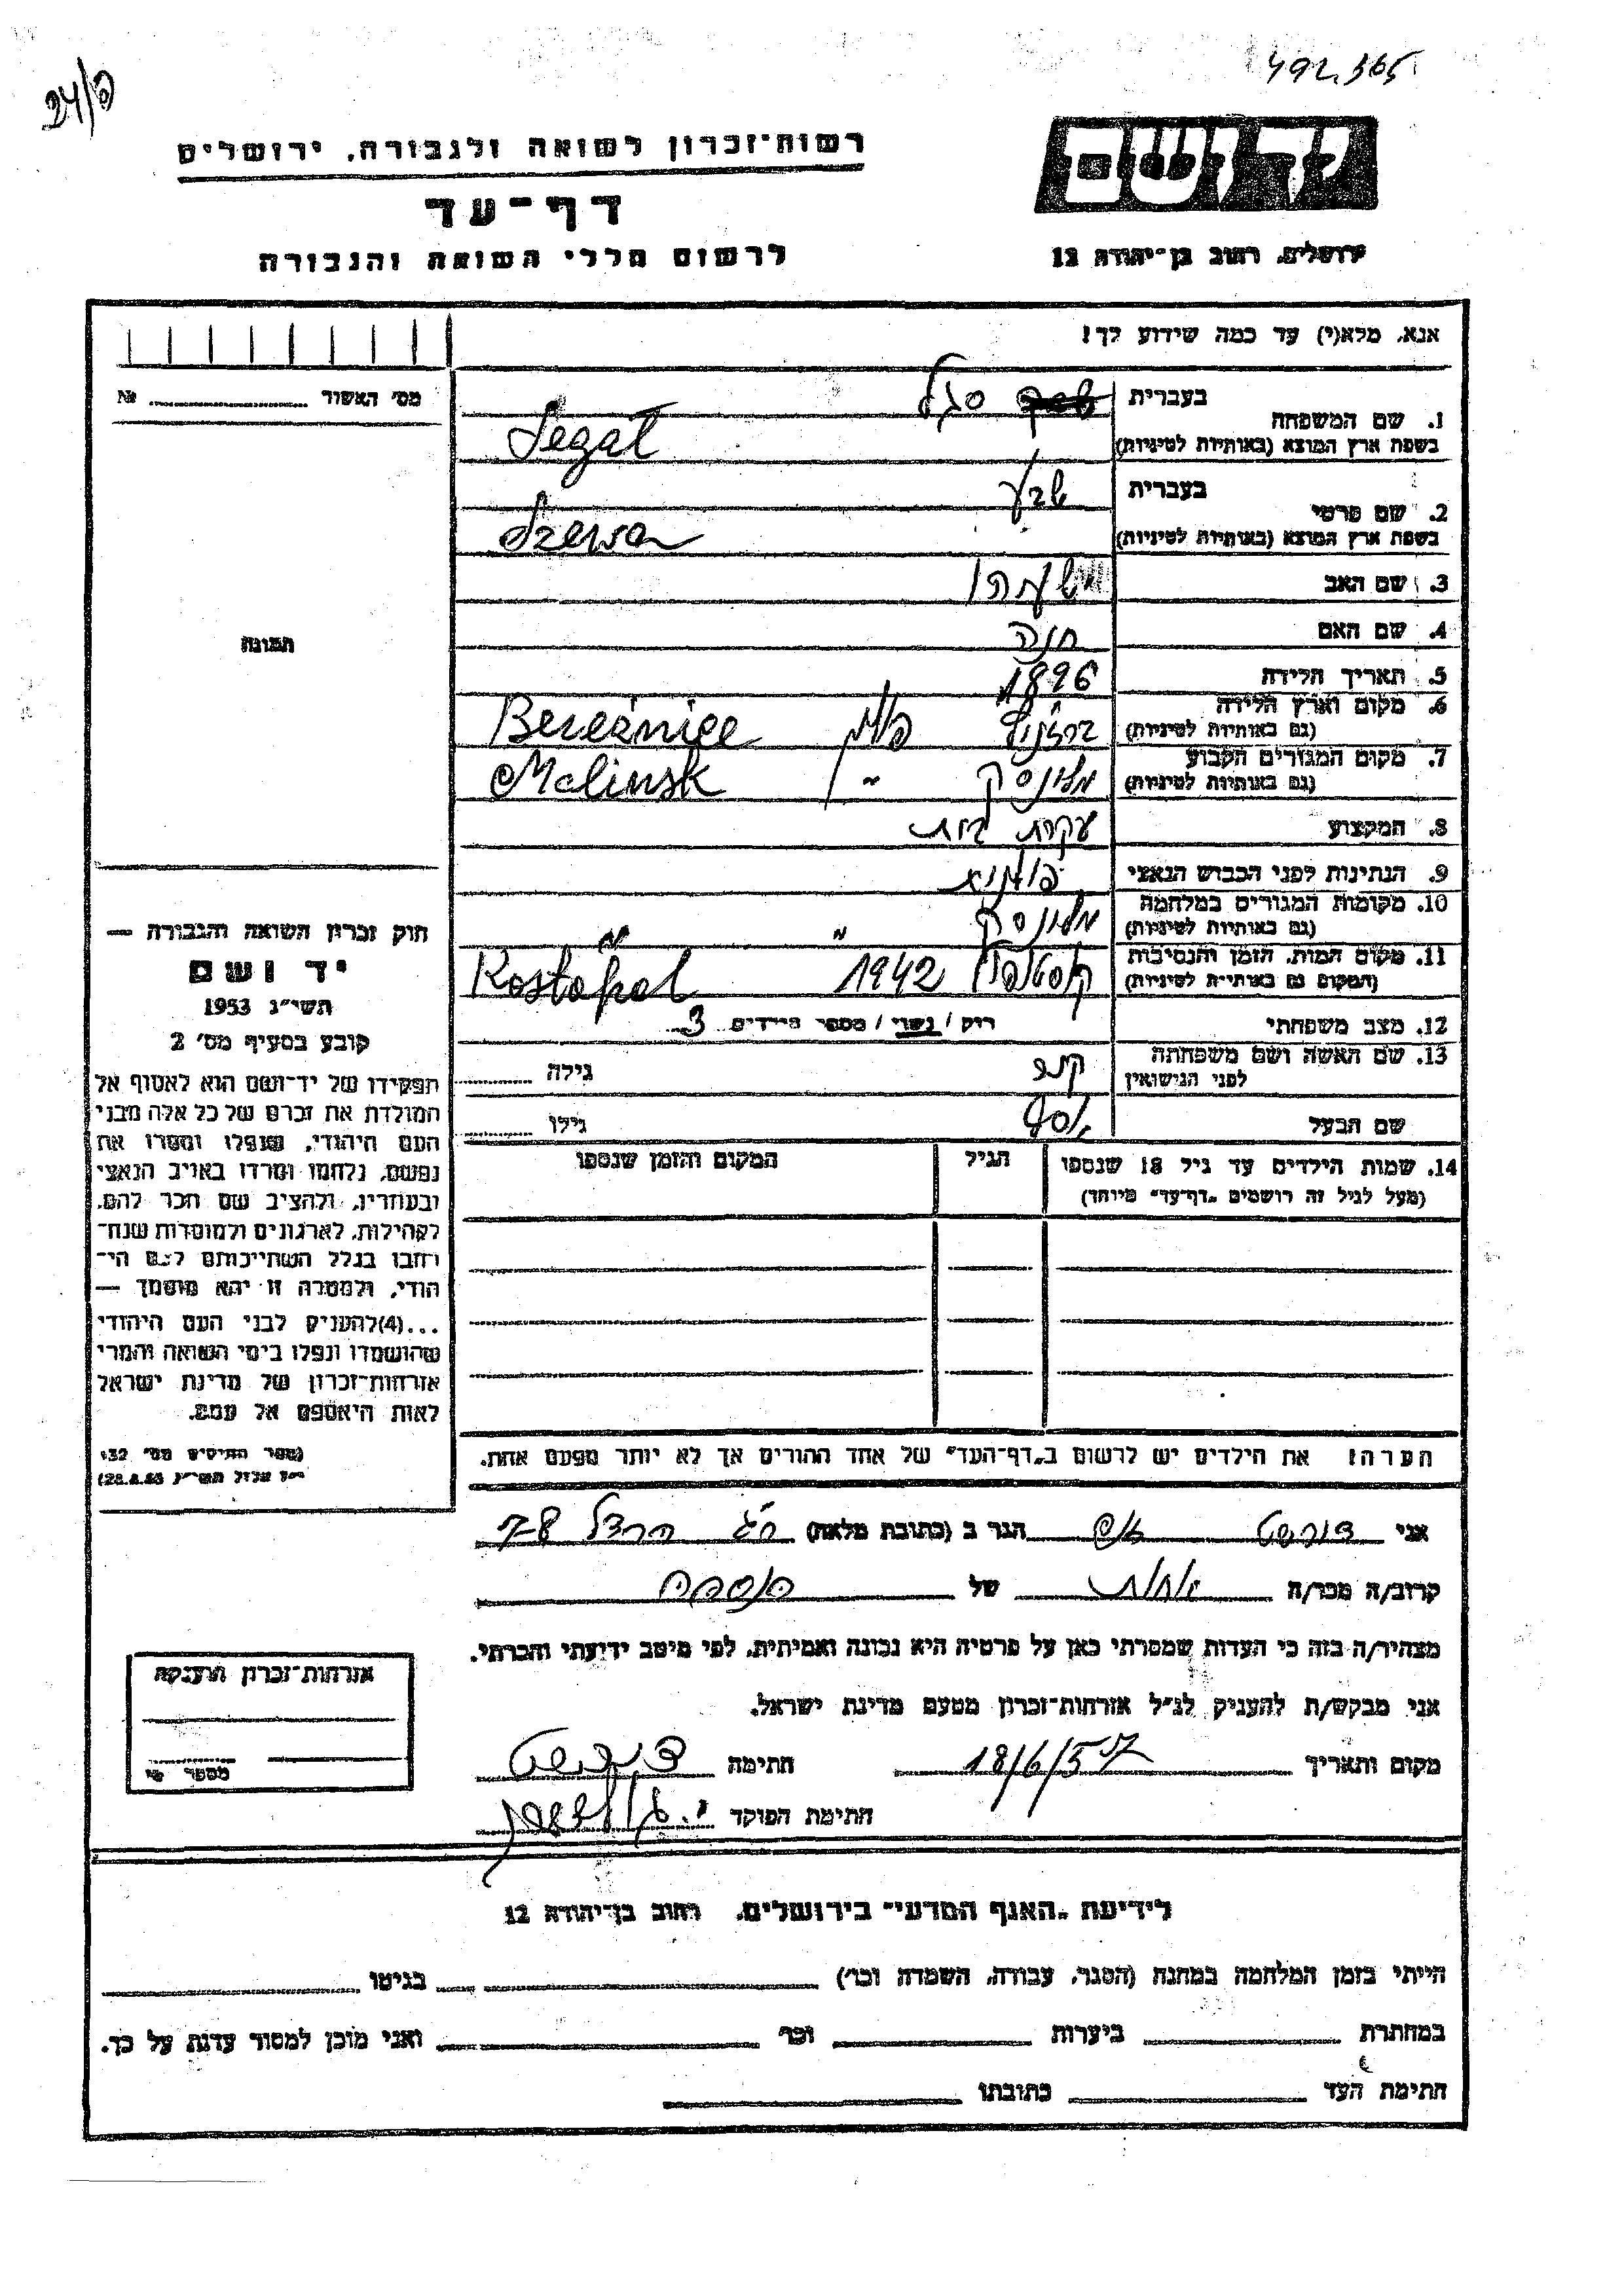 492.365
24/פ
יד ושם
רשות־זכרון לשואה ולגבורה, ירושלים
דף־עד
לרשום חללי השואה והגבורה
ירושלים, רחוב בן־יהודה 12
אנא, מלא(י) עד כמה שידוע לך!
מס' האשור № 
1. שם המשפחה
בעברית סגל
בשפת ארץ המוצא (באותיות לטיניות) Segał
2. שם פרטי
בעברית שבע
בשפת ארץ המוצא (באותיות לטיניות) Szewa
3. שם האב ישעיהו
4. שם האם חנה
5. תאריך הלידה 1896
6. מקום וארץ הלידה
(גם באותיות לטיניות) פולין Bereźnice
7. מקום המגורים הקבוע
(גם באותיות לטיניות) מלינסק " Malinsk
8. המקצוע עקרת בית
9. הנתינות לפני הכבוש הנאצי פולנית
10. מקומות המגורים במלחמה
(גם באותיות לטיניות) מלינסק " "
11. מקום המות, הזמן והנסיבות
(המקום גם באותיות לטיניות) 1942 Kostopol
12. מצב משפחתי רוק / נשוי / מספר הילדים 3
13. שם האשה ושם משפחתה
לפני הנישואין גילה
שם הבעל יוסף גילו
14. שמות הילדים עד גיל 18 שנספו
(מעל לגיל זה רושמים "דף־עד" מיוחד)
הגיל
המקום והזמן שנספו
הערה: את הילדים יש לרשום ב"דף־העד" של אחד ההורים אך לא יותר מפעם אחת.
תמונה
חוק זכרון השואה והגבורה —
יד ושם
תשי"ג 1953
קובע בסעיף מס' 2
תפקידו של יד־ושם הוא לאסוף אל
המולדת את זכרם של כל אלה מבני
העם היהודי, שנפלו ומסרו את
נפשם, נלחמו ומרדו באויב הנאצי
ובעוזריו, ולהציב שם וזכר להם,
לקהילות, לארגונים ולמוסדות שנח־
רבו בגלל השתייכותם לעם הי־
הודי, ולמטרה זו יהא מוסמך —
...(4) להעניק לבני העם היהודי
שהושמדו ונפלו בימי השואה והמרי
אזרחות־זכרון של מדינת ישראל
לאות היאספם אל עמם.
(ספר החוקים מס' 132
י"ז אלול תשי"ג 28.8.53)
אני הגר ב (כתובת מלאה)
קרוב/ה מכר/ה אחות של הנספה
מצהיר/ה בזה כי העדות שמסרתי כאן על פרטיה היא נכונה ואמיתית, לפי מיטב ידיעתי והכרתי.
אני מבקש/ת להעניק לנ"ל אזרחות־זכרון מטעם מדינת ישראל.
מקום ותאריך 18/6/57 חתימה
חתימת הפוקד
אזרחות־זכרון הוענקה
מספר
לידיעת "האגף המדעי" בירושלים, רחוב בן־יהודה 12
הייתי בזמן המלחמה במחנה (הסגר, עבודה, השמדה וכו') בגיטו
במחתרת ביערות וכו' ואני מוכן למסור עדות על כך.
חתימת העד כתובתו